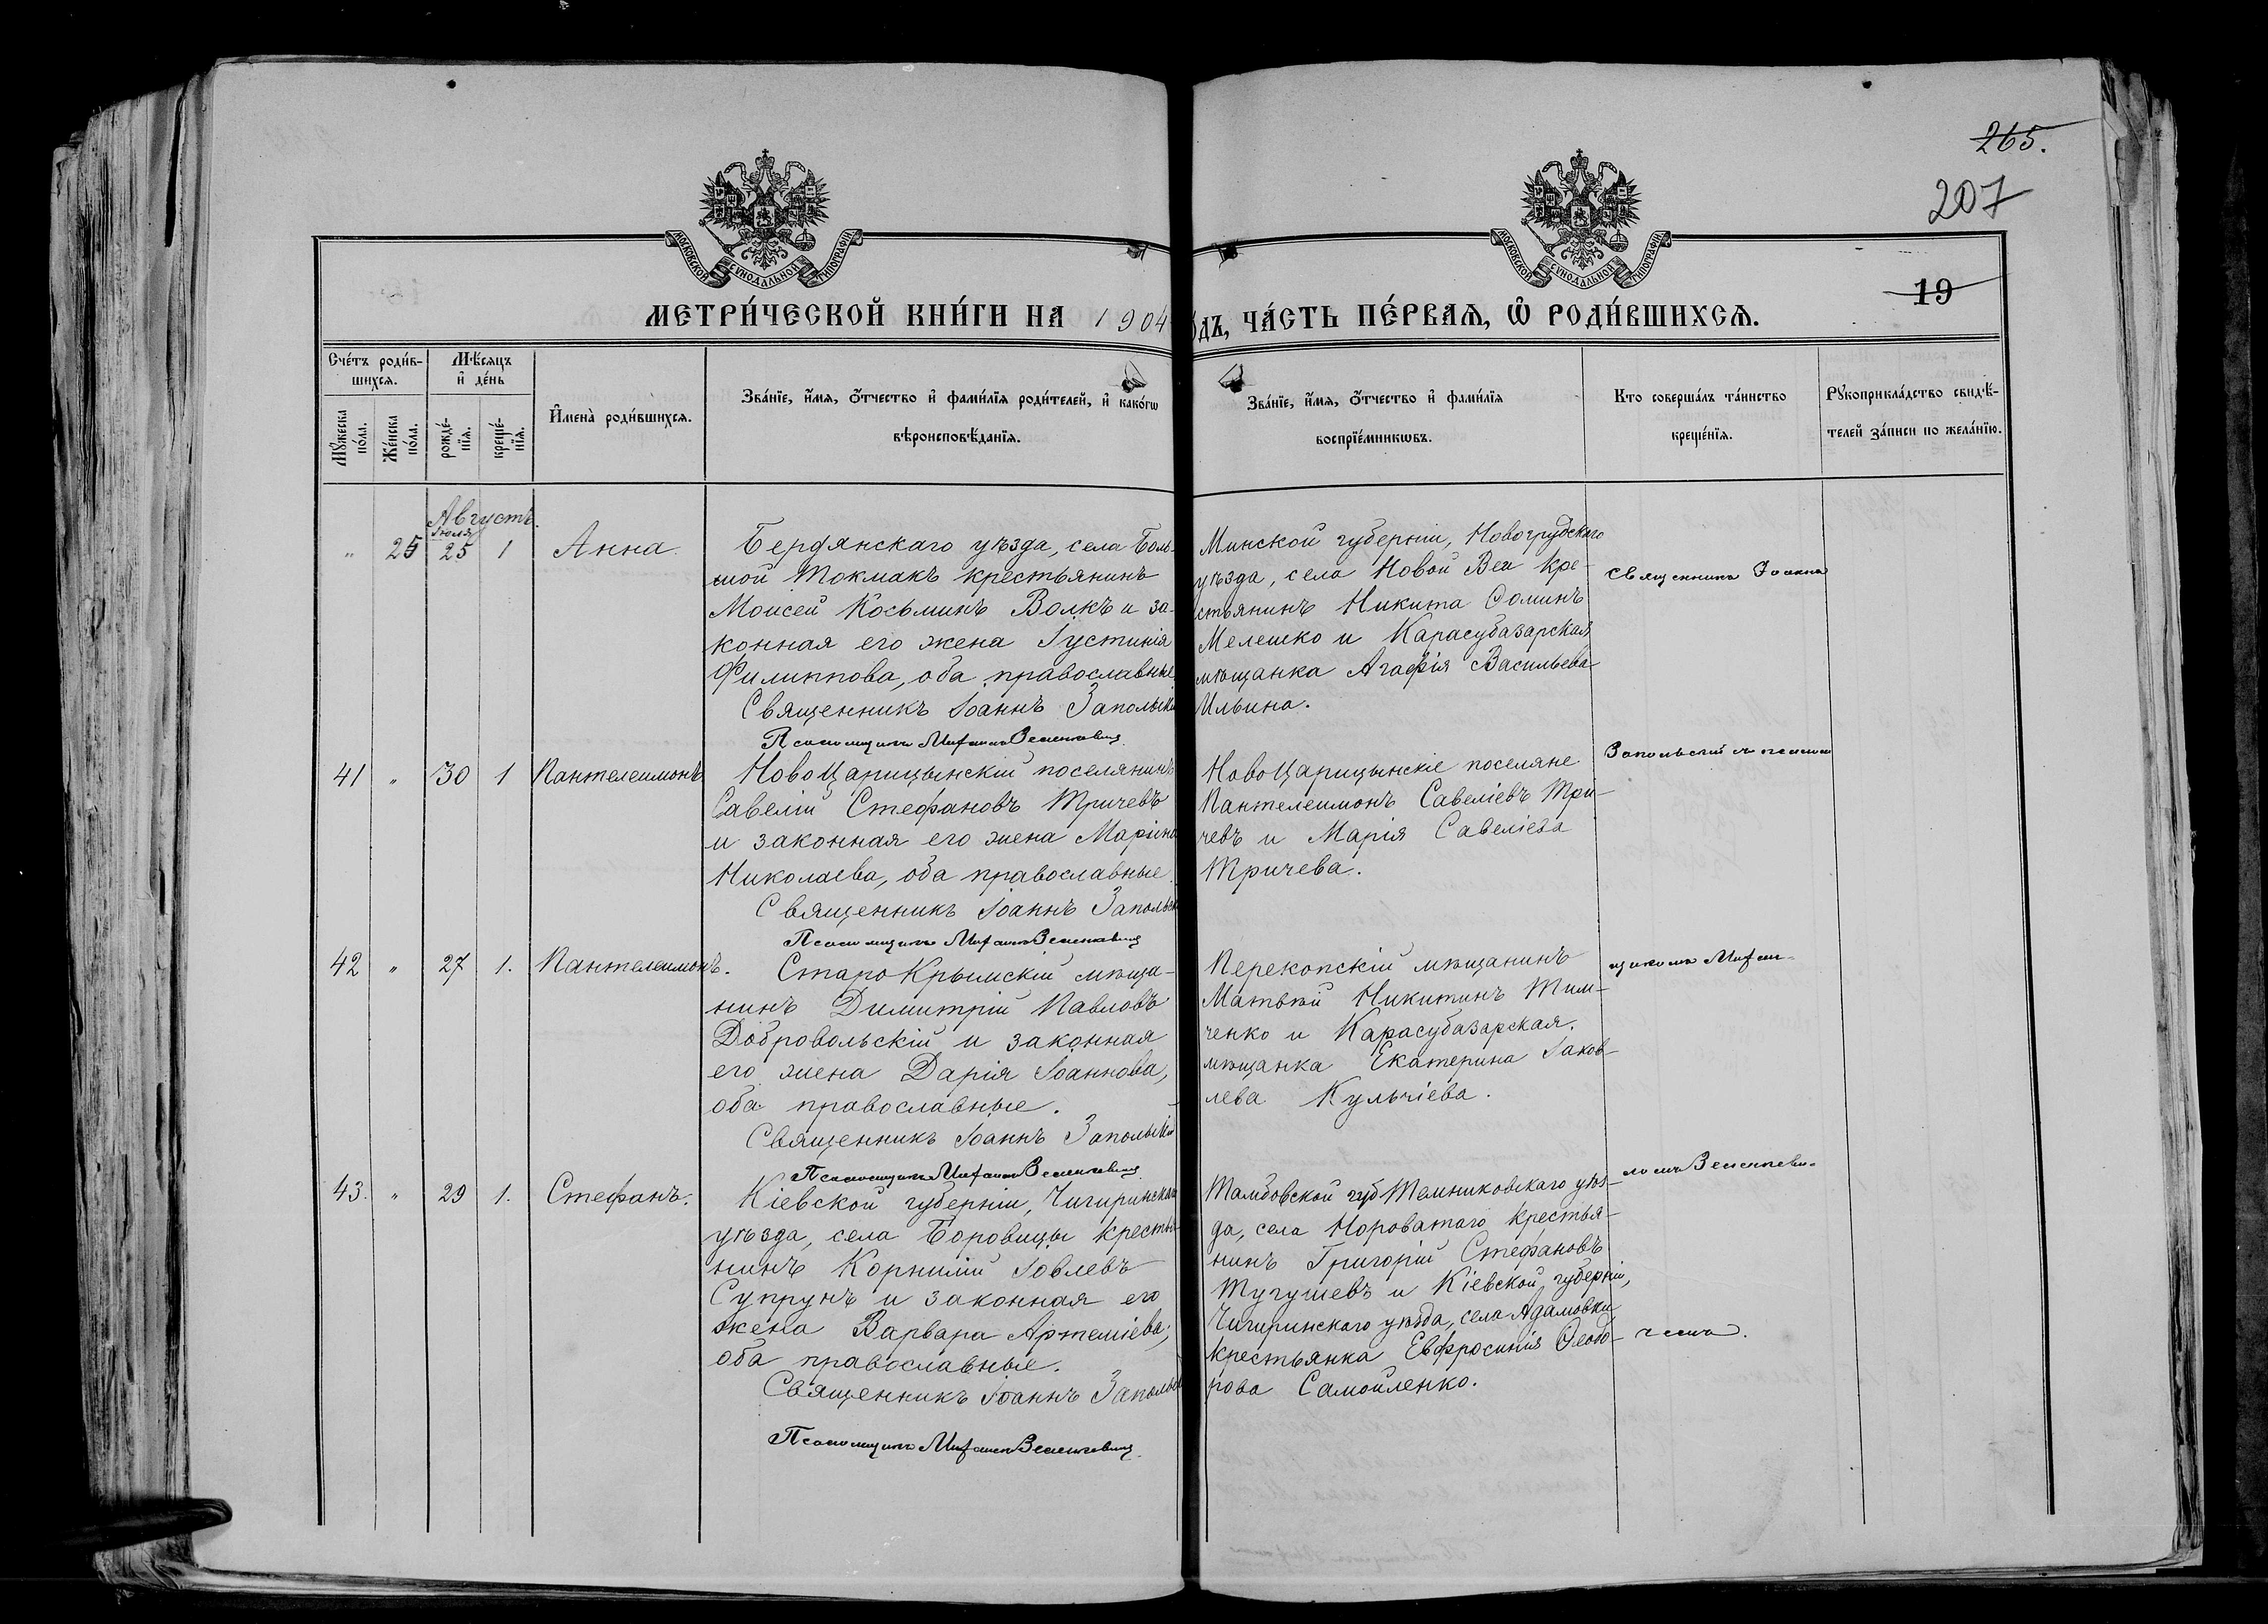 265.
207
МОСКОВСКОЙ СУНОДАЛЬНОЙ ТИПОГРАФІИ
МОСКОВСКОЙ СУНОДАЛЬНОЙ ТИПОГРАФІИ
19
МЕТРИ́ЧЕСКОЙ КНИ́ГИ НА 1904
ДЪ, ЧА́СТЬ ПЕ́РВАЯ, Ѡ РОДИ́ВШИХСѦ.
Сче́тъ роди́в-
шихсѧ.
Мꙋ́жеска по́ла.
Же́нска по́ла.
Мѣ́сѧцъ
и҆ де́нь
рожде́-
нїѧ.
креще́-
нїѧ.
И҆мена̀ роди́вшихсѧ.
Зва́нїе, и҆́мѧ, ѻ҆́тчество и҆ фами́лїѧ роди́телей, и҆ како́гѡ
вѣроисповѣ́данїѧ.
Зва́нїе, и҆́мѧ, ѻ҆́тчество и҆ фами́лїѧ
воспрїе́мникѡвъ.
Кто соверша́лъ та́инство
креще́нїѧ.
Рꙋкоприкла́дство свидѣ́-
телей за́писи по жела́нїю.
Августъ.
Іюля
" 25 25 1 Анна.
Бердянскаго уѣзда, села Боль-
шой Токмакъ крестьянинъ
Моисей Косьминъ Волкъ и за-
конная его жена Іустинія
Филиппова, оба православные
Священникъ Іоаннъ Запольскій
Псаломщикъ
Минской губерніи, Новогрудскаго
уѣзда, села Новой Веи кре-
стьянинъ Никита Ѳоминъ
Мелешко и Карасубазарская
мѣщанка Агафія Васильева
Ильина.
Священникъ Іоаннъ
41 " 30 1 Пантелеимонъ
НовоЦарицынскій поселянинъ
Савелій Стефановъ Тричевъ
и законная его жена Марина
Николаева, оба православные.
Священникъ Іоаннъ Запольск
Псаломщикъ
НовоЦарицынскіе поселяне
Пантелеимонъ Савеліевъ Три-
чевъ и Марія Савеліева
Тричева.
Запольскій съ псалом
42 " 27 1. Пантелеимонъ.
СтароКрымскій мѣща-
нинъ Димитрій Павловъ
Добровольскій и законная
его жена Дарія Іоаннова,
оба православные.
Священникъ Іоаннъ Запольскій
Псаломщикъ
Перекопскій мѣщанинъ
Матвѣй Никитинъ Тим-
ченко и Карасубазарская.
мѣщанка Екатерина Іаков-
лева Кульчіева.
щикомъ
43. " 29 1. Стефанъ.
Кіевской губерніи, Чигиринскаго
уѣзда, села Боровицы крестья-
нинъ Корнилій Іовлевъ
Супрунъ и законная его
жена Варвара Артеміева;
оба православные.
Священникъ Іоаннъ Запольск
Псаломщикъ
Тамбовской губ Темниковскаго уѣз-
да, села Нороватаго крестья-
нинъ Григорій Стефановъ
Тугушевъ и Кіевской губерніи,
Чигиринскаго уѣзда, села Адамовки
крестьянка Евфросинія Ѳеодо-
рова Самойленко.
чемъ.